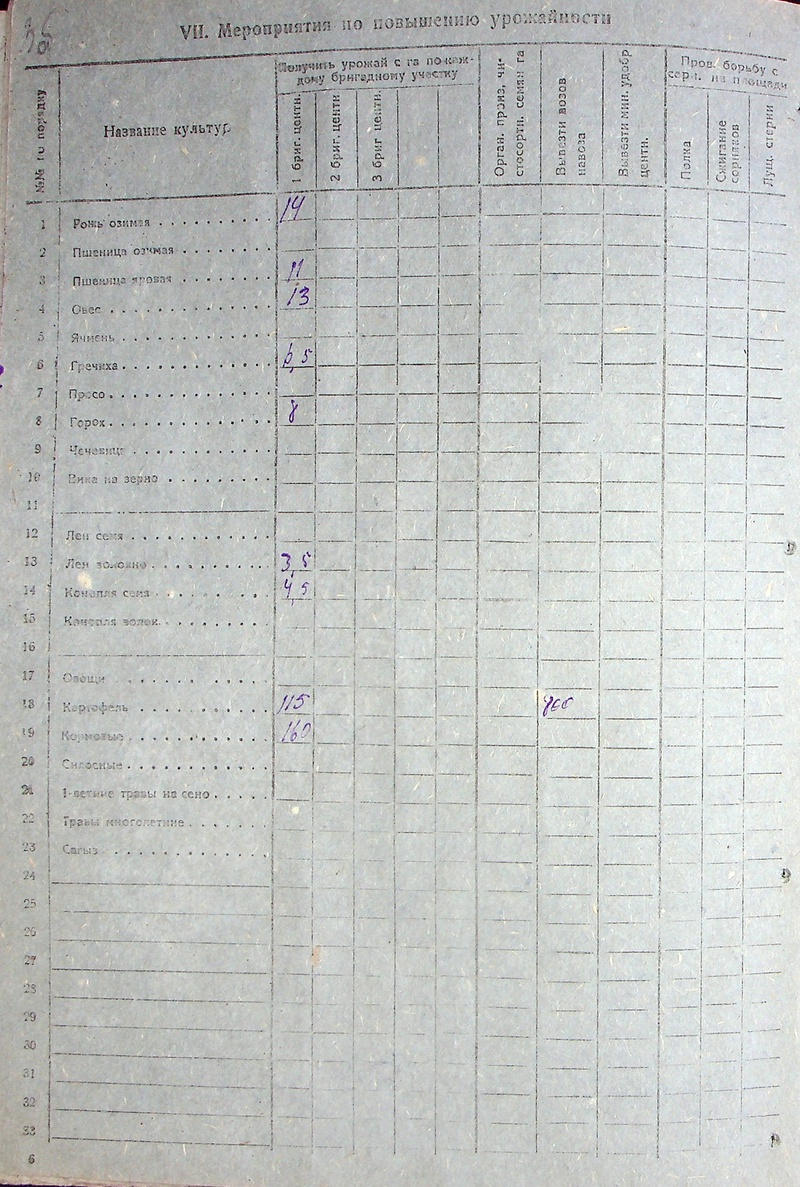 VII. Мероприятия по повышению урожайности
№№ по порядку
Название культур
Получить урожай с га по каж-
дому бригадному участку
1 бриг. центн.
2 бриг. центн
3 бриг центн.
Орган. произ, чи-
стосортн. семян га
Вывезти возов
навоза
Вывезти мин. удобр.
центн.
Пров. борьбу с
сорн. на площади
Полка
Сжигание
сорняков
Лущ. стерни
1 Рожь озимая 14
2 Пшеница озимая
3 Пшеница яровая 11
4 Овес 13
5 Ячмень
6 Гречиха 6,5
7 Просо
8 Горох 8
9 Чечевица
10 Вика на зерно
11
12 Лен семя
13 Лен волокно 3,5
14 Конопля семя 4,5
15 Конопля волок.
16
17 Овощи
18 Картофель 115
19 Кормовые 160
20 Силосные
21 1-летние травы на сено
22 Травы многолетние
23 Сагыз
24
25
26
27
28
29
30
31
32
33
6